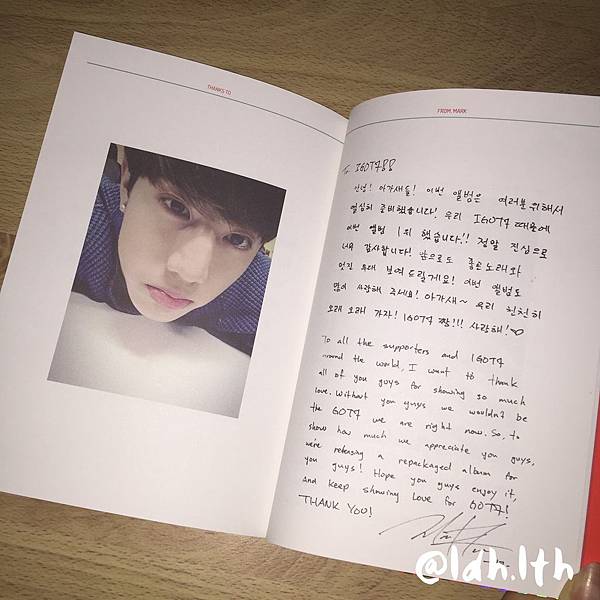 THANKS TO
FROM. MARK
To IGOT7
안녕! 아가새들! 이번 앨범은 여러분 위해서
열심히 준비했습니다! 우리 IGOT7 때문에
이번 앨범 1위 했습니다!! 정말 진심으로
너무 감사합니다! 앞으로도 좋은 노래와
멋진 무대 보여드릴게요! 이번 앨범도
많이 사랑해 주세요! 아가새~ 우리 천천히
오래 오래 가자! IGOT7 짱!!! 사랑해!♡
To all the supporters and IGOT7
around the world, I want to thank
all of you guys for showing so much
love. Without you guys we wouldn't be
the GOT7 we are right now. So, to
show how much we appreciate you guys,
we're releasing a repackaged album for
you guys! Hope you guys enjoy it,
and keep showing love for GOT7!
THANK YOU!
@ldh.lth